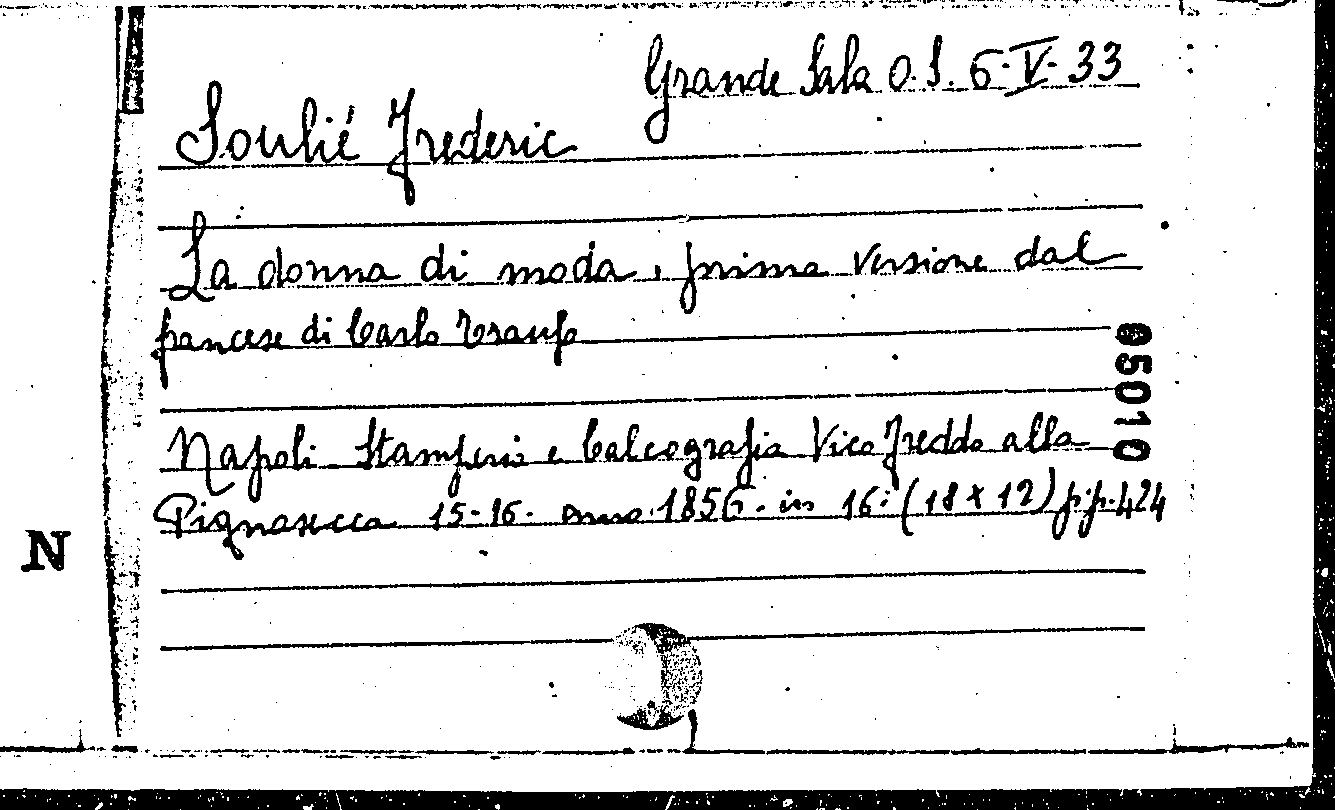 Grande Sala O.S. 6-V-33
Soulié Frederic
La donna di moda, prima versione dal
francese di Carlo
Napoli. Stamperia e Calcografia Vico Freddo alla
Pignasecca 15-16. anno. 1856. in 16: (18 x 12) pp. 424
05010
N